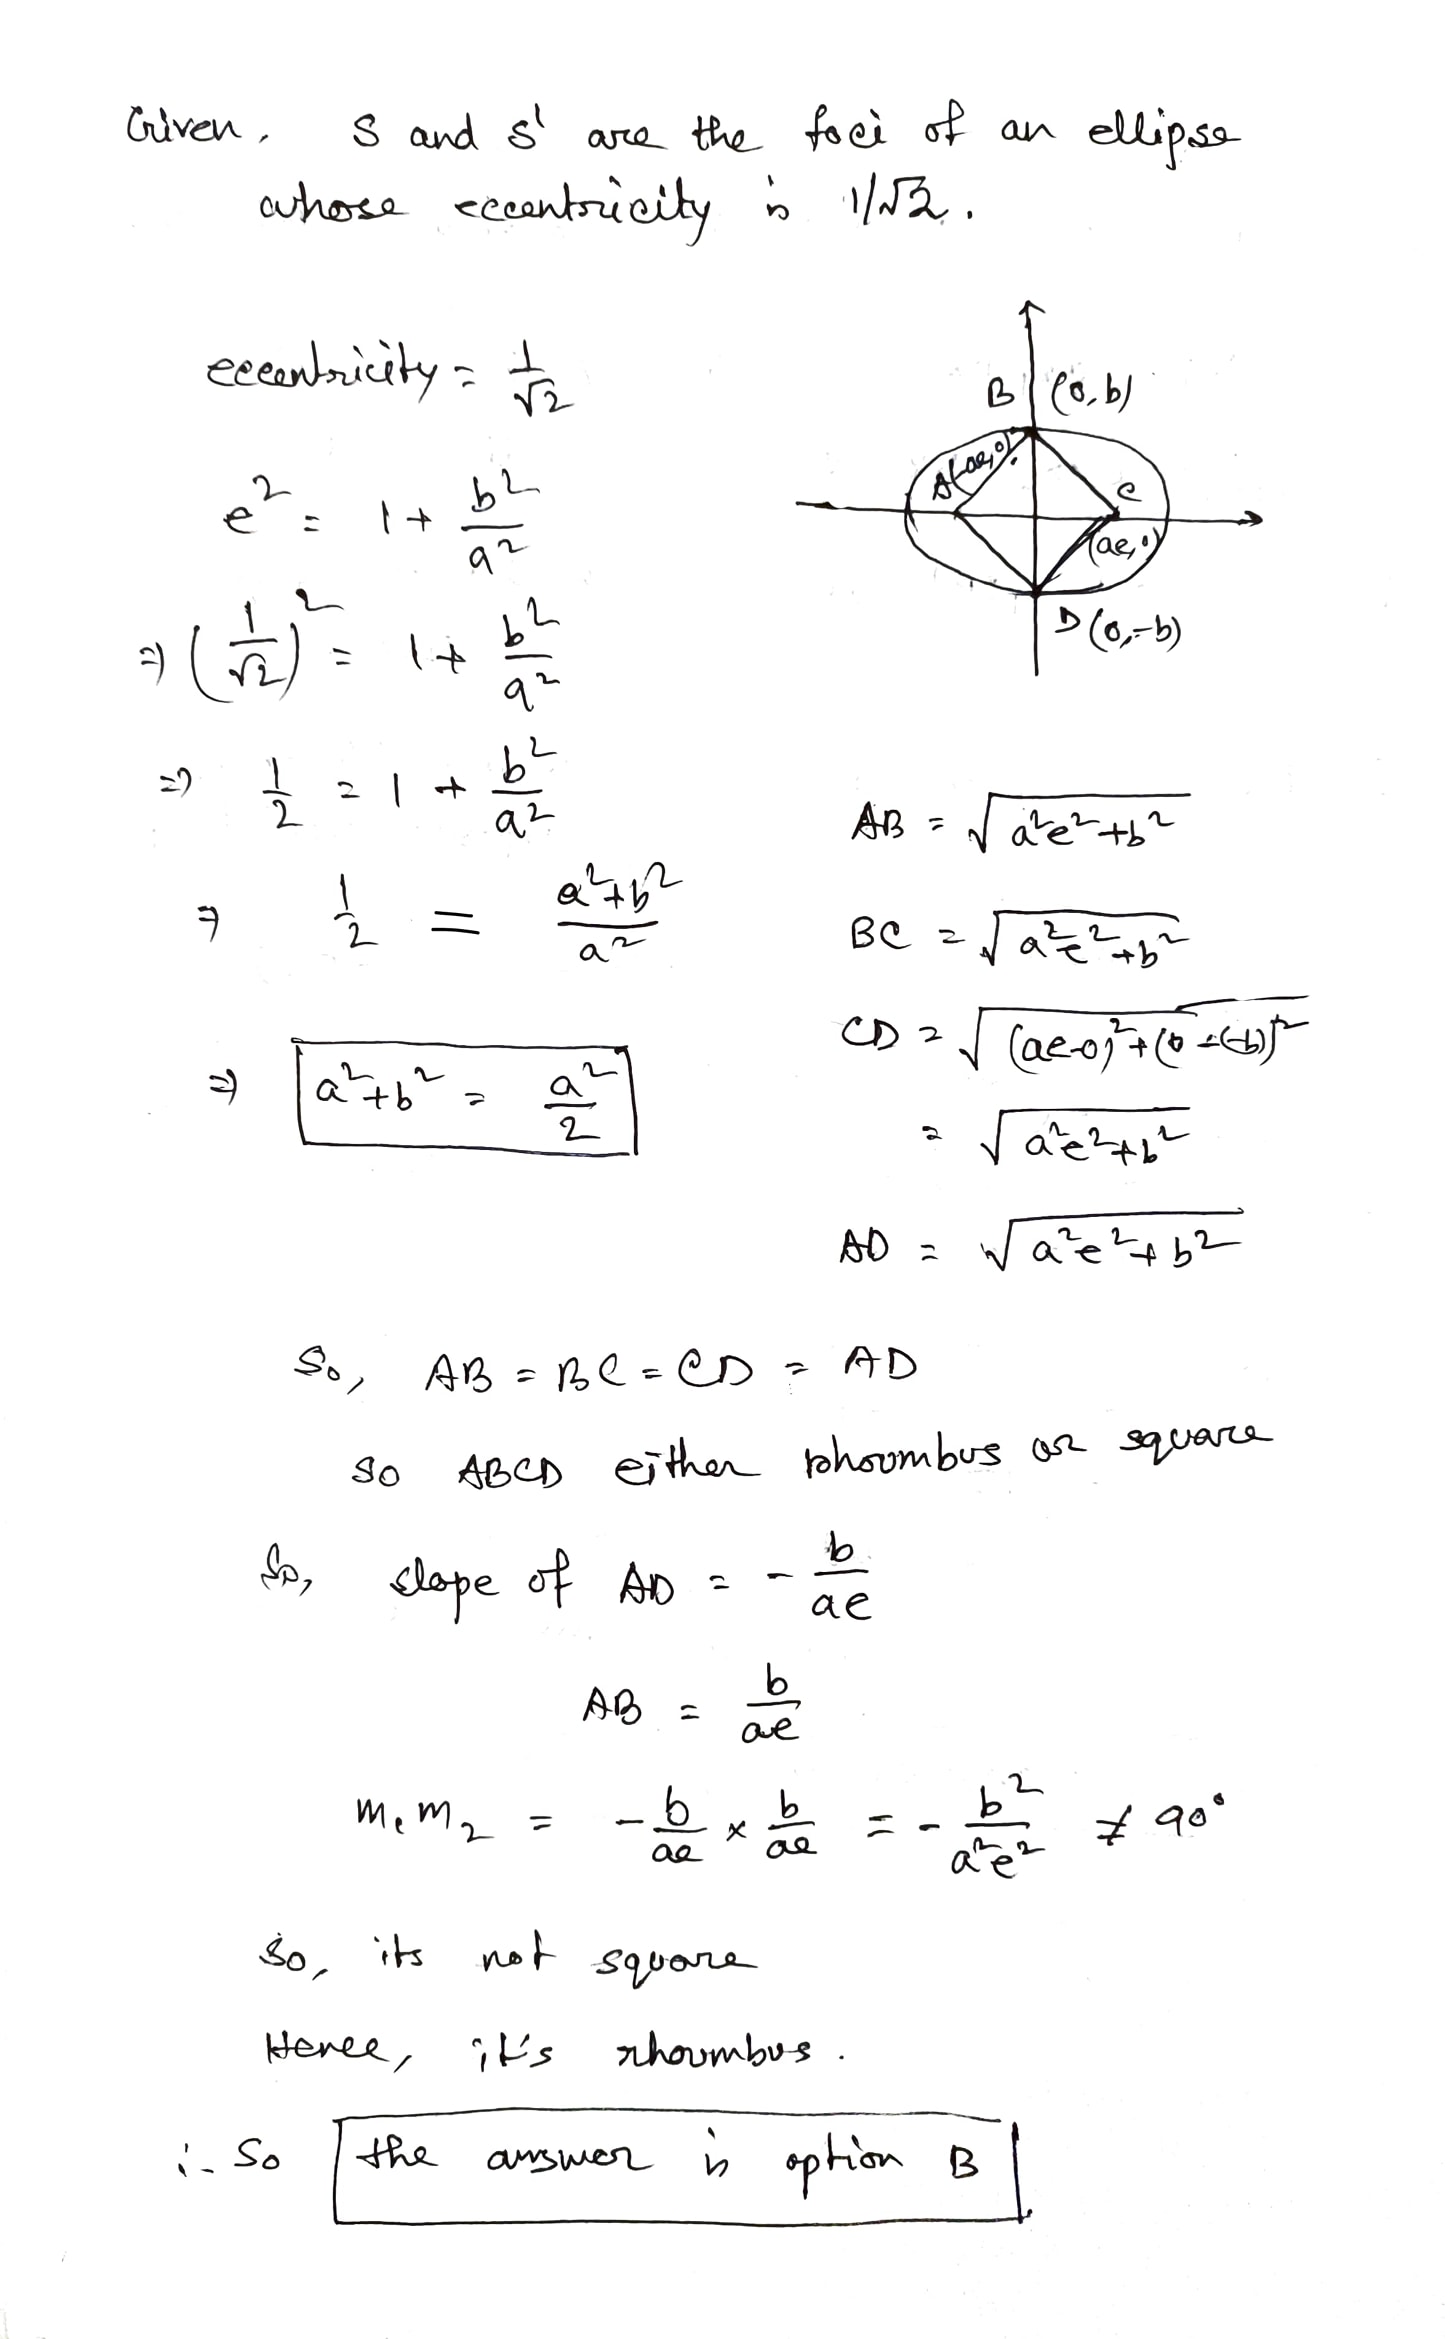 Given, S and S' are the foci of an ellipse
whose eccentricity is 1/√2.
eccentricity = 1/√2
e² = 1 + b²/a²
⇒ (1/√2)² = 1 + b²/a²
⇒ 1/2 = 1 + b²/a²
⇒ 1/2 = (a²+b²)/a²
⇒ a²+b² = a²/2
B (0, b)
A(-ae, 0)
C
(ae, 0)
D (0, -b)
AB = √(a²e²+b²)
BC = √(a²e²+b²)
CD = √((ae-0)²+(0-(-b))²)
= √(a²e²+b²)
AD = √(a²e²+b²)
So, AB = BC = CD = AD
so ABCD either rhoumbus or square
So, slope of AD = -b/ae
AB = b/ae
m₁m₂ = -b/ae × b/ae = -b²/a²e² ≠ 90°
So, its not square
Hence, it's rhoumbus.
∴ So the answer is option B